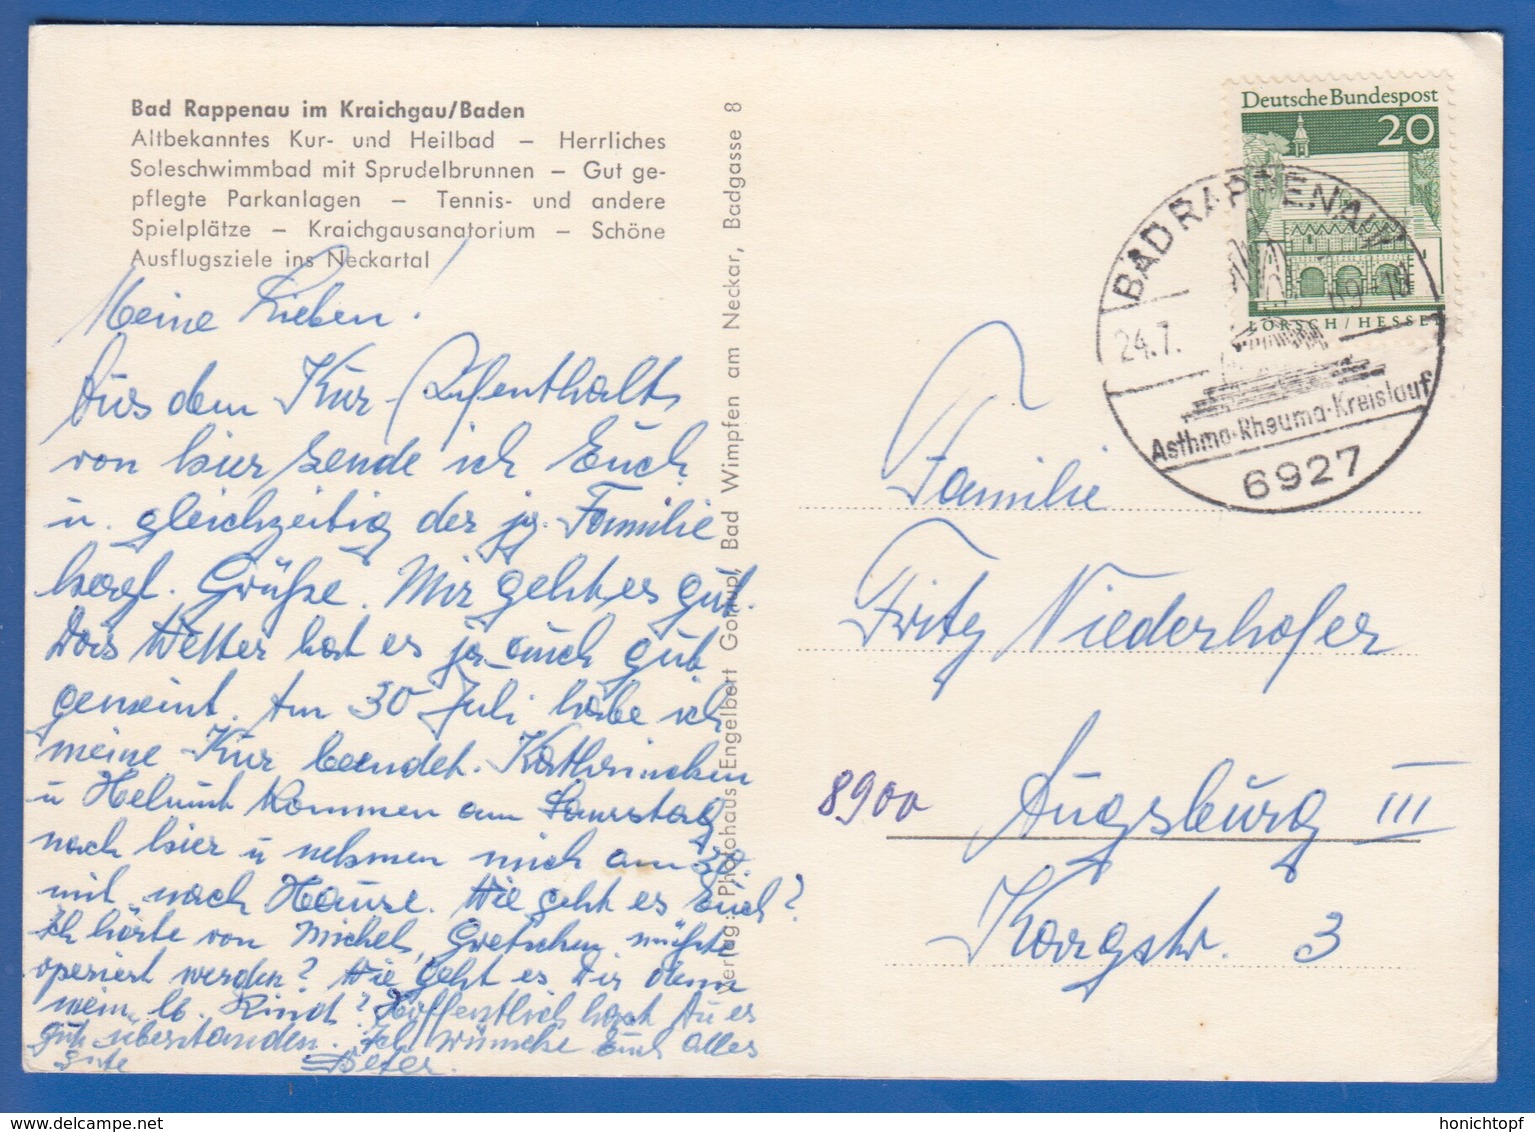 Bad Rappenau im Kraichgau/Baden
Altbekanntes Kur- und Heilbad – Herrliches
Soleschwimmbad mit Sprudelbrunnen – Gut ge-
pflegte Parkanlagen – Tennis- und andere
Spielplätze – Kraichgausanatorium – Schöne
Ausflugsziele ins Neckartal
Meine Lieben!
Aus dem Kur-Aufenthalt
von hier sende ich Euch
u. gleichzeitig der jg. Familie
herzl. Grüße. Mir geht es gut.
Das Wetter hat es ja auch gut
gemeint. Am 30 Juli habe ich
meine Kur beendet. Kathrinchen
u Helmut kommen am Samstag
nach hier u nehmen mich am 30.
mit nach Hause. Wie geht es Euch?
Ich hörte von Michel, Gretchen müßte
operiert werden? Wie geht es Dir denn
mein lb. Kind? Hoffentlich hast Du es
gut überstanden. Ich wünsche Euch alles
gute
Verlag: Photohaus Engelbert Gomupl, Bad Wimpfen am Neckar, Badgasse 8
Deutsche Bundespost
20
LORSCH / HESSEN
BAD RAPPENAU
24.7.
69-18
Asthma-Rheuma-Kreislauf
6927
Familie
Fritz Niederhofer
8900 Augsburg III
Kargstr. 3
www.delcampe.net
honichtopf